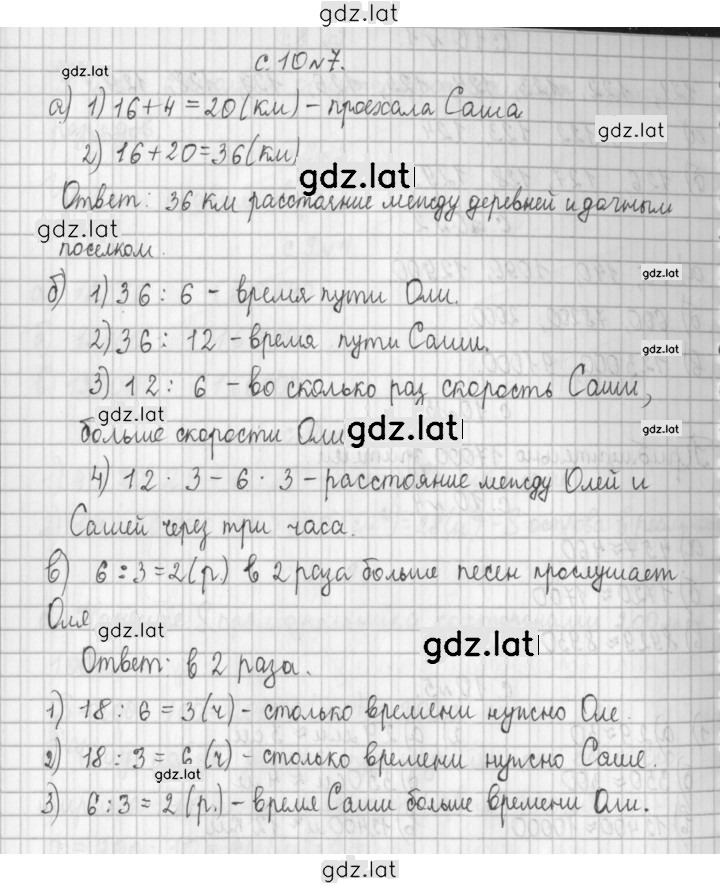 gdz.lat
с. 10 №7.
gdz.lat
а) 1) 16+4 = 20 (км) - проехала Саша
gdz.lat
2) 16+20=36(км)
gdz.lat
Ответ: 36 км расстояние между деревней и дачным
gdz.lat
поселком.
gdz.lat
б) 1) 36 : 6 - время пути Оли.
2) 36 : 12 - время пути Саши.
gdz.lat
3) 12 : 6 - во сколько раз скорость Саши,
gdz.lat
больше скорости Оли
gdz.lat
gdz.lat
4) 12 · 3 - 6 · 3 - расстояние между Олей и
Сашей через три часа.
в) 6 : 3 = 2 (р.) в 2 раза больше песен прослушает
Оля
gdz.lat
gdz.lat
Ответ: в 2 раза.
1) 18 : 6 = 3 (ч) - столько времени нужно Оле.
2) 18 : 3 = 6 (ч) - столько времени нужно Саше.
gdz.lat
3) 6 : 3 = 2 (р.) - время Саши больше времени Оли.
gdz.lat